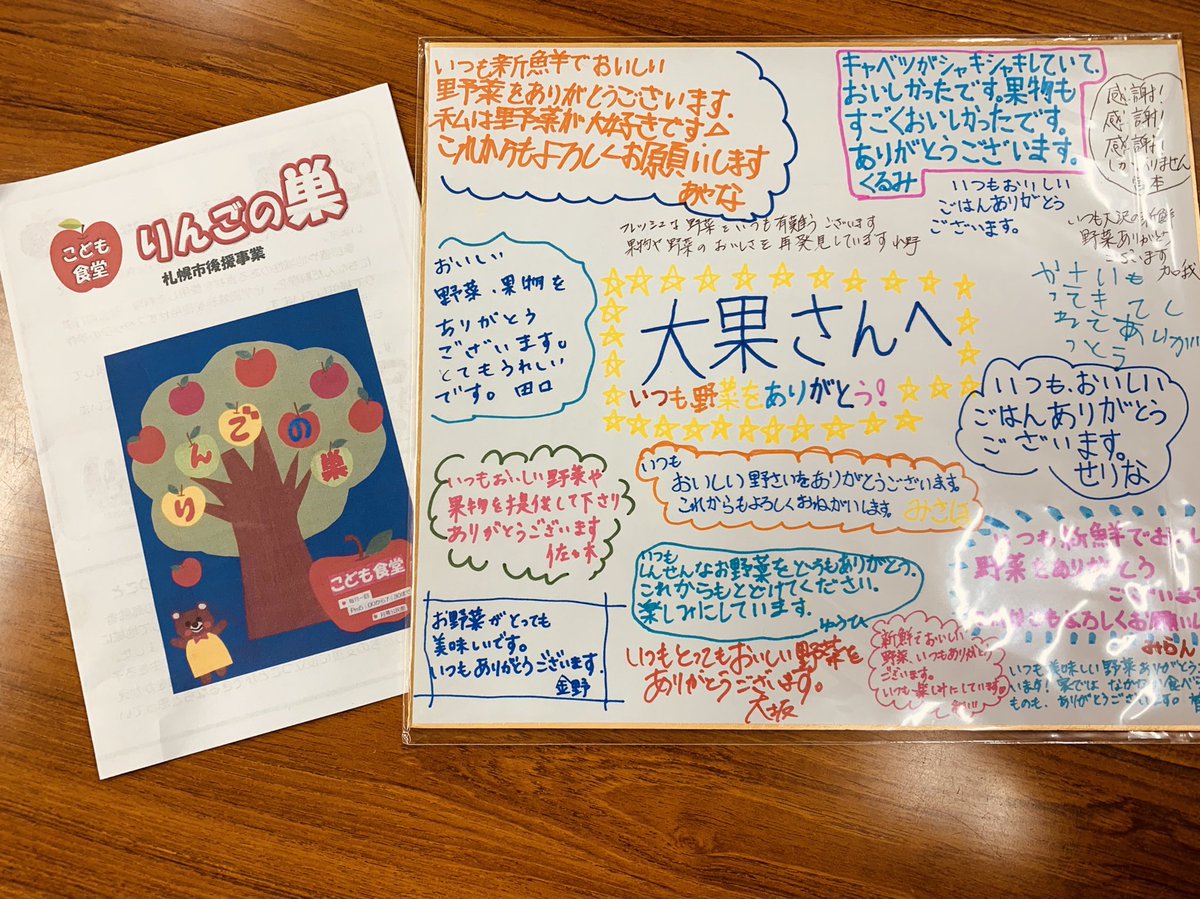 こども
食堂
りんごの巣
札幌市後援事業
りんごの巣
こども食堂
いつも新鮮でおいしい
野菜をありがとうございます。
私は野菜が大好きです
これからもよろしくお願いします
あやな
キャベツがシャキシャキしていて、
おいしかったです。果物も
すごくおいしかったです。
ありがとうございます。
くるみ
感謝!
感謝!
感謝!
しかありません
宮本
いつもおいしい
ごはんありがとう
ございます。
フレッシュな野菜をいつも有難うございます
果物や野菜のおいしさを再発見しています 小野
いつも大沢の新鮮
野菜ありがとう
ございます
加我
おいしい
野菜、果物を
ありがとう
ございます。
とてもうれしい
です。 田口
大果さんへ
いつも野菜をありがとう!
いつも、おいしい
ごはんありがとう
ございます。
せりな
いつもおいしい野菜や
果物を提供して下さり
ありがとうございます
佐々木
いつも
おいしい野さいをありがとうございます。
これからもよろしくおねがいします。 みさほ
いつも
しんせんなお野菜をどうもありがとう。
これからもとどけてください。
楽しみにしています。
ゆうひ
いつも新鮮でおいし
野菜をありがとう
ございま
これからもよろしくお願いし
みらん
お野菜がとっても
美味しいです。
いつもありがとうございます。
金野
いつもとってもおいしい野菜を
ありがとうございます。
大坂
新鮮でおいしい
野菜、いつもありがとう
ございます。
いつも楽しみにしています。
いつも美味しい野菜ありがとうご
います! 家ではなかなか食べ
ものも、ありがとうございます。